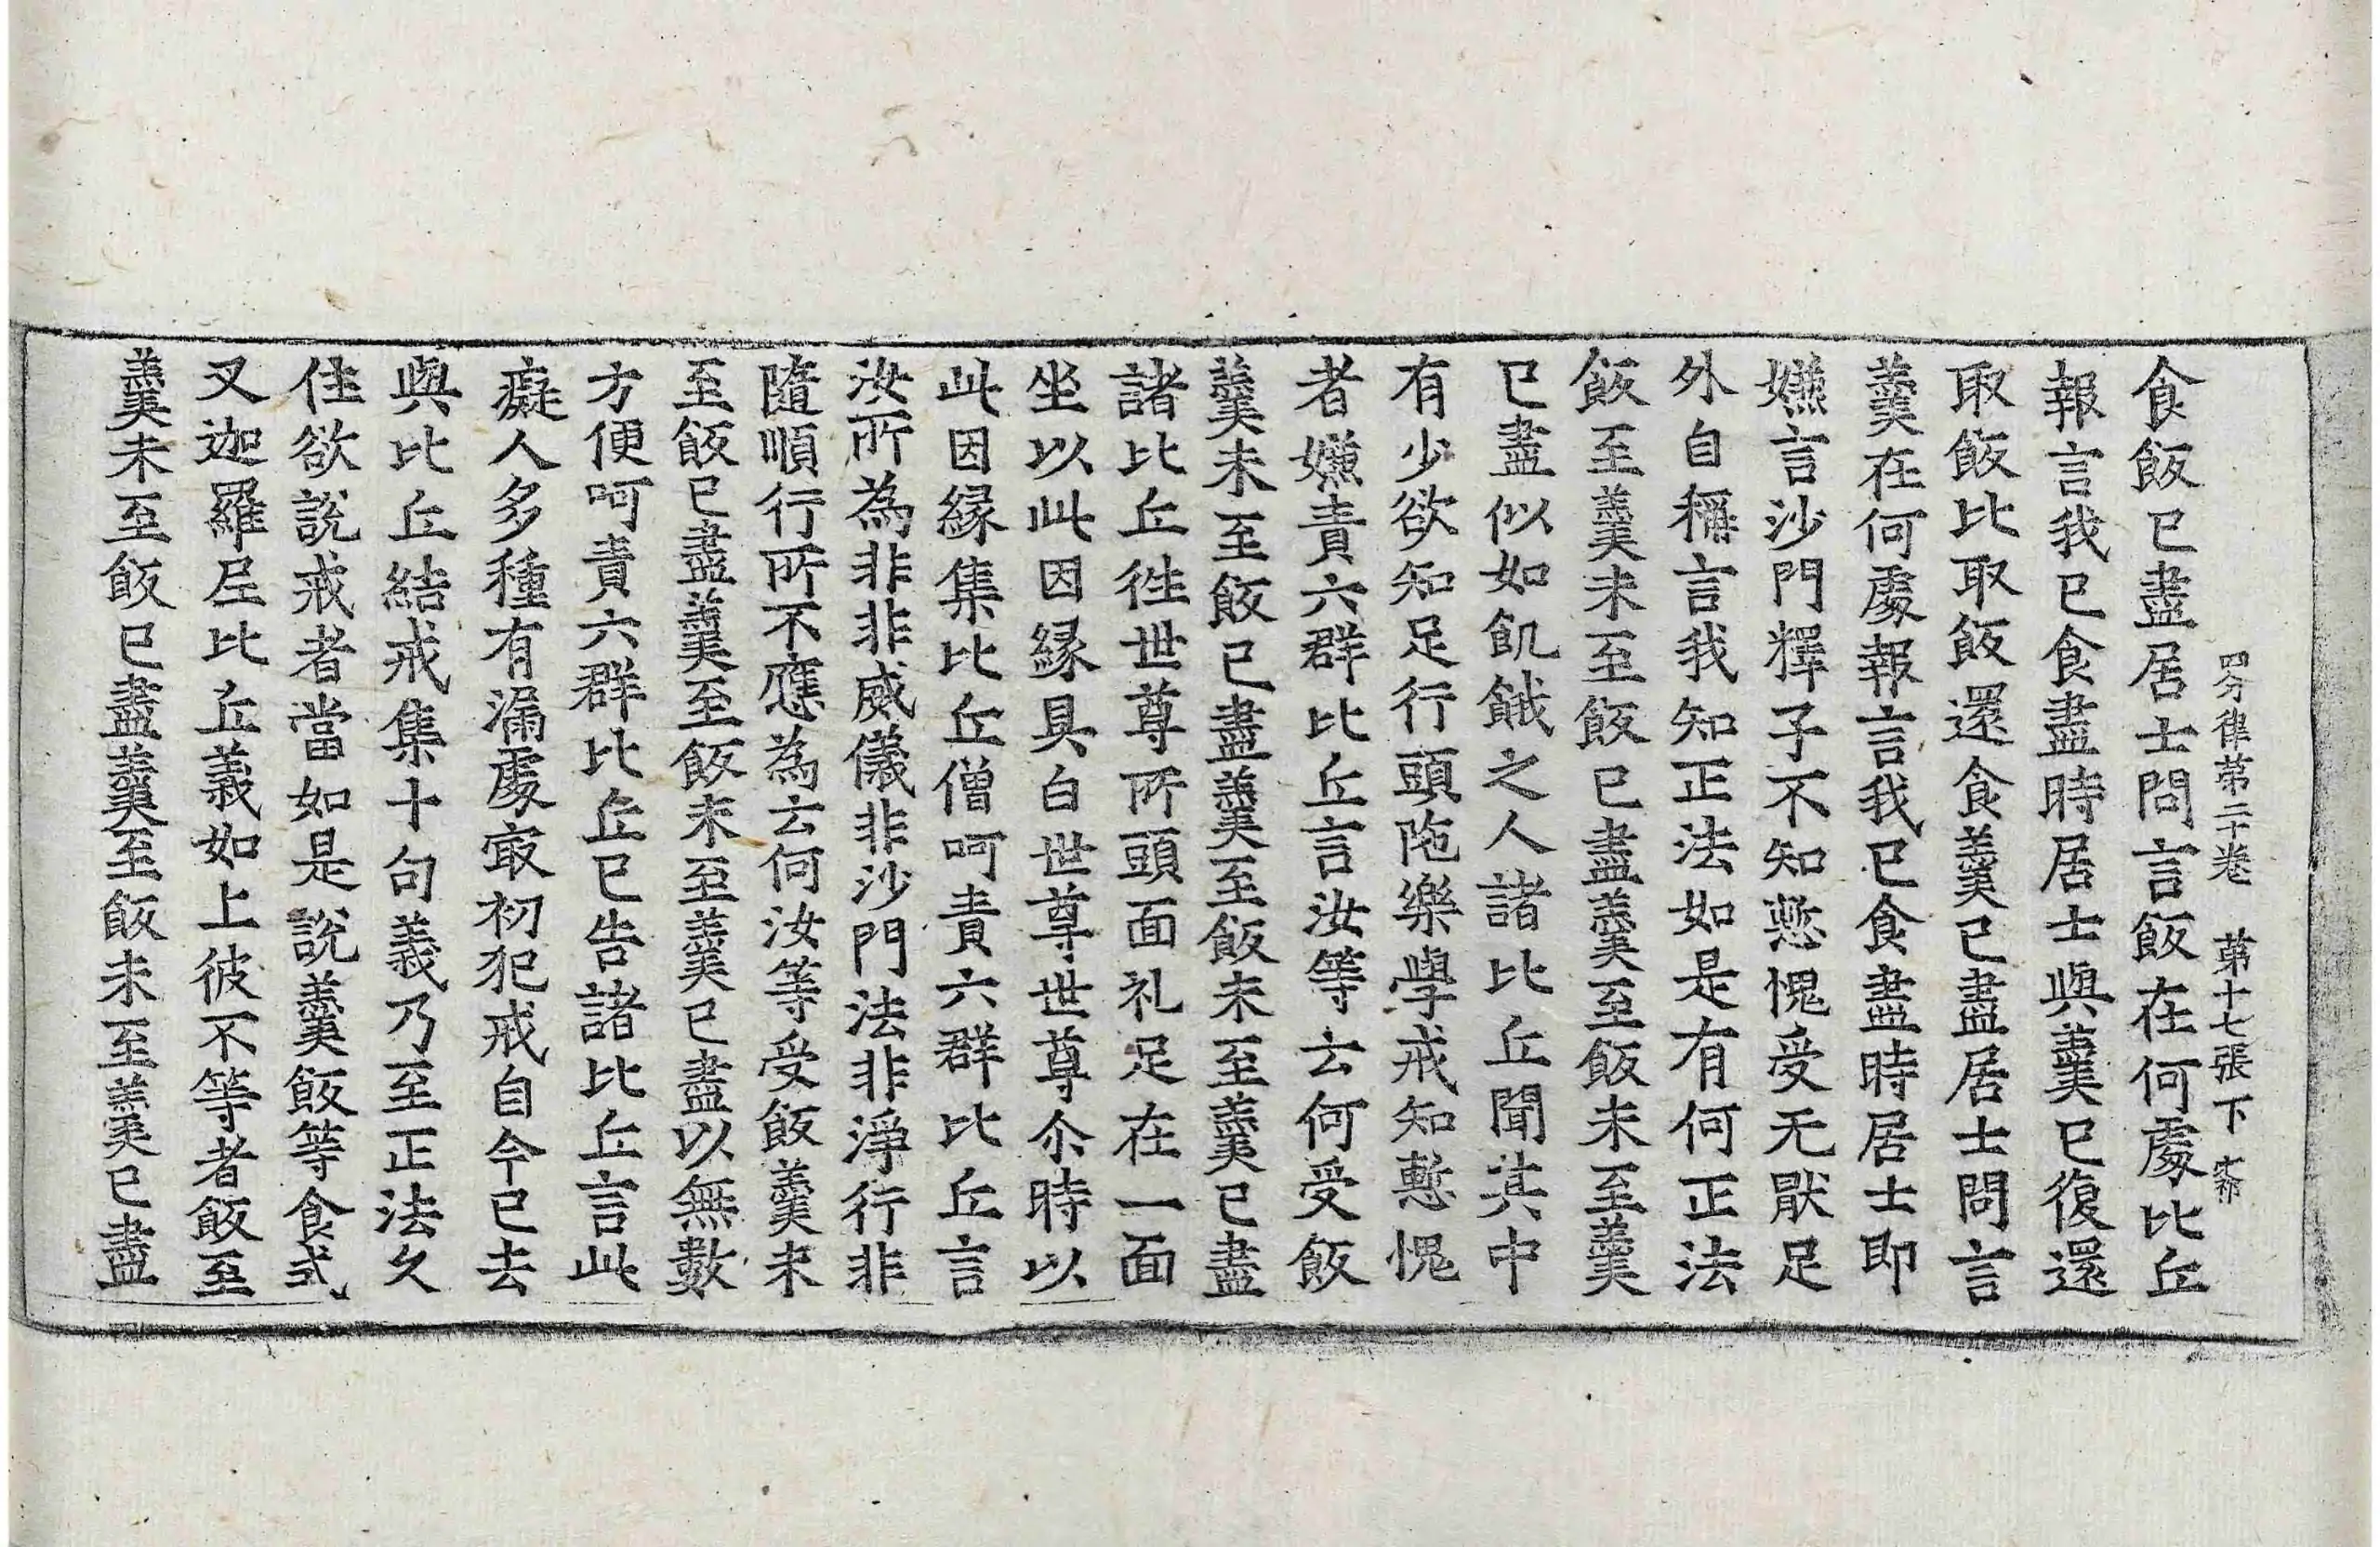 四分律第二十卷 第十七張下
食飯已盡居士問言飯在何處比丘
報言我已食盡時居士與羹已復還
取飯比取飯還食羹已盡居士問言
羹在何處報言我已食盡時居士即
嫌言沙門釋子不知慙愧受无猒足
外自稱言我知正法如是有何正法
飯至羹未至飯已盡羹至飯未至羹
已盡似如飢餓之人諸比丘聞其中
有少欲知足行頭陁樂學戒知慙愧
者嫌責六群比丘言汝等云何受飯
羹未至飯已盡羹至飯未至羹已盡
諸比丘徃世尊所頭面礼足在一面
坐以此因緣具白世尊世尊尒時以
此因緣集比丘僧呵責六群比丘言
汝所為非非威儀非沙門法非淨行非
隨順行所不應為云何汝等受飯羹未
至飯已盡羹至飯未至羹已盡以無數
方便呵責六群比丘已告諸比丘言此
癡人多種有漏處㝡初犯戒自今已去
與比丘結戒集十句義乃至正法久
住欲說戒者當如是說羹飯等食式
叉迦羅尼比丘義如上彼不等者飯至
羹未至飯已盡羹至飯未至羹已盡